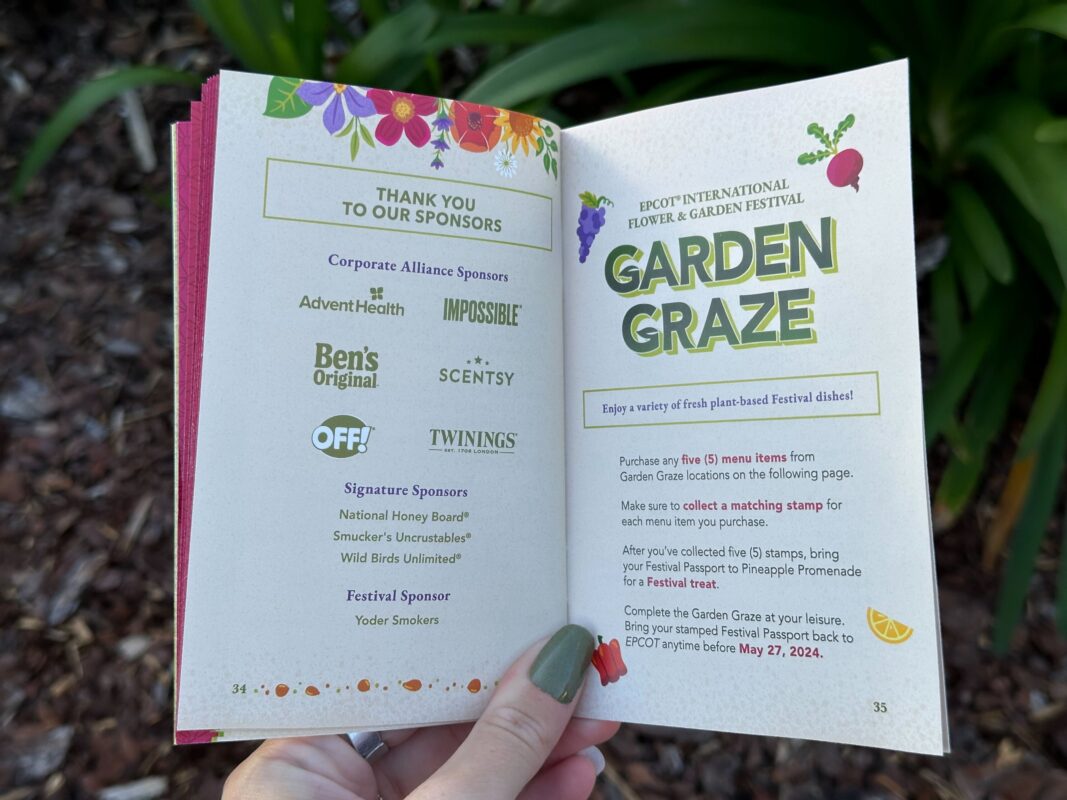 THANK YOU
TO OUR SPONSORS
Corporate Alliance Sponsors
AdventHealth
IMPOSSIBLE™
Ben's
Original™
SCENTSY
OFF!™
TWININGS®
EST. 1706 LONDON
Signature Sponsors
National Honey Board®
Smucker's Uncrustables®
Wild Birds Unlimited®
Festival Sponsor
Yoder Smokers
34
EPCOT® INTERNATIONAL
FLOWER & GARDEN FESTIVAL
GARDEN
GRAZE
Enjoy a variety of fresh plant-based Festival dishes!
Purchase any five (5) menu items from
Garden Graze locations on the following page.
Make sure to collect a matching stamp for
each menu item you purchase.
After you've collected five (5) stamps, bring
your Festival Passport to Pineapple Promenade
for a Festival treat.
Complete the Garden Graze at your leisure.
Bring your stamped Festival Passport back to
EPCOT anytime before May 27, 2024.
35